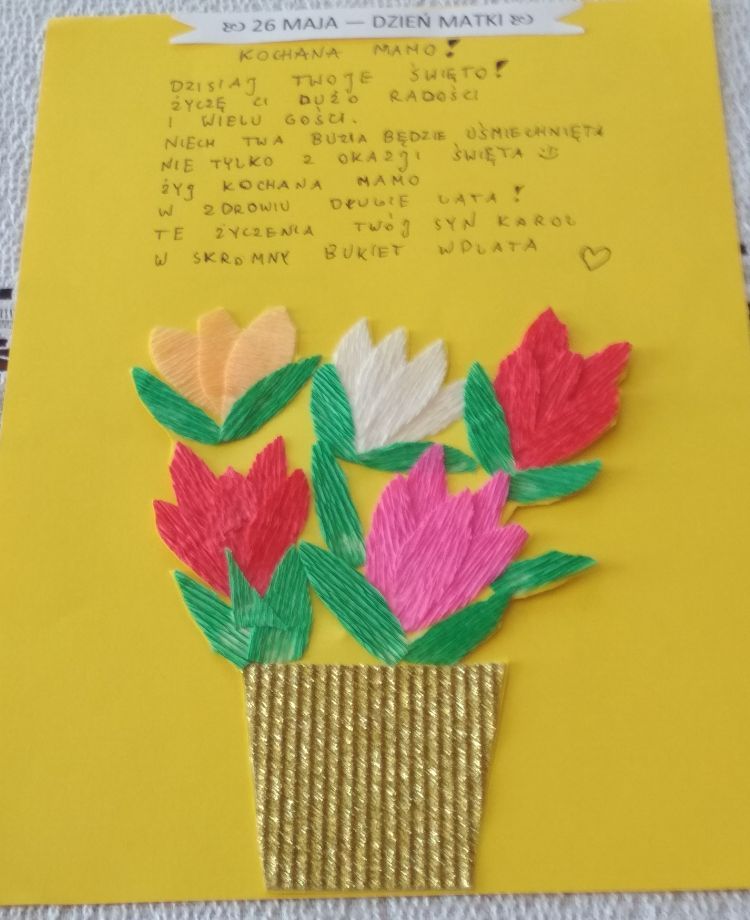 26 MAJA — DZIEŃ MATKI
KOCHANA MAMO!
DZISIAJ TWOJE ŚWIĘTO!
ŻYCZĘ CI DUŻO RADOŚCI
I WIELU GOŚCI.
NIECH TWA BUZIA BĘDZIE UŚMIECHNIĘTA
NIE TYLKO Z OKAZJI ŚWIĘTA
ŻYJ KOCHANA MAMO
W ZDROWIU DŁUGIE LATA!
TE ŻYCZENIA TWÓJ SYN KAROL
W SKROMNY BUKIET WPLATA